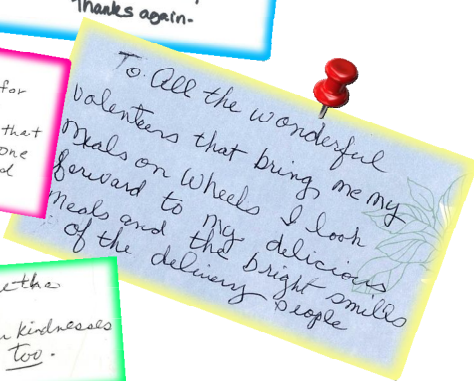 Thanks again-
for
that
one
d
To All the wonderful
valenteers that bring me my
Meals on Wheels I look
forward to my delicious
meals and the bright smiles
of the delivery people
kindnesses
too.